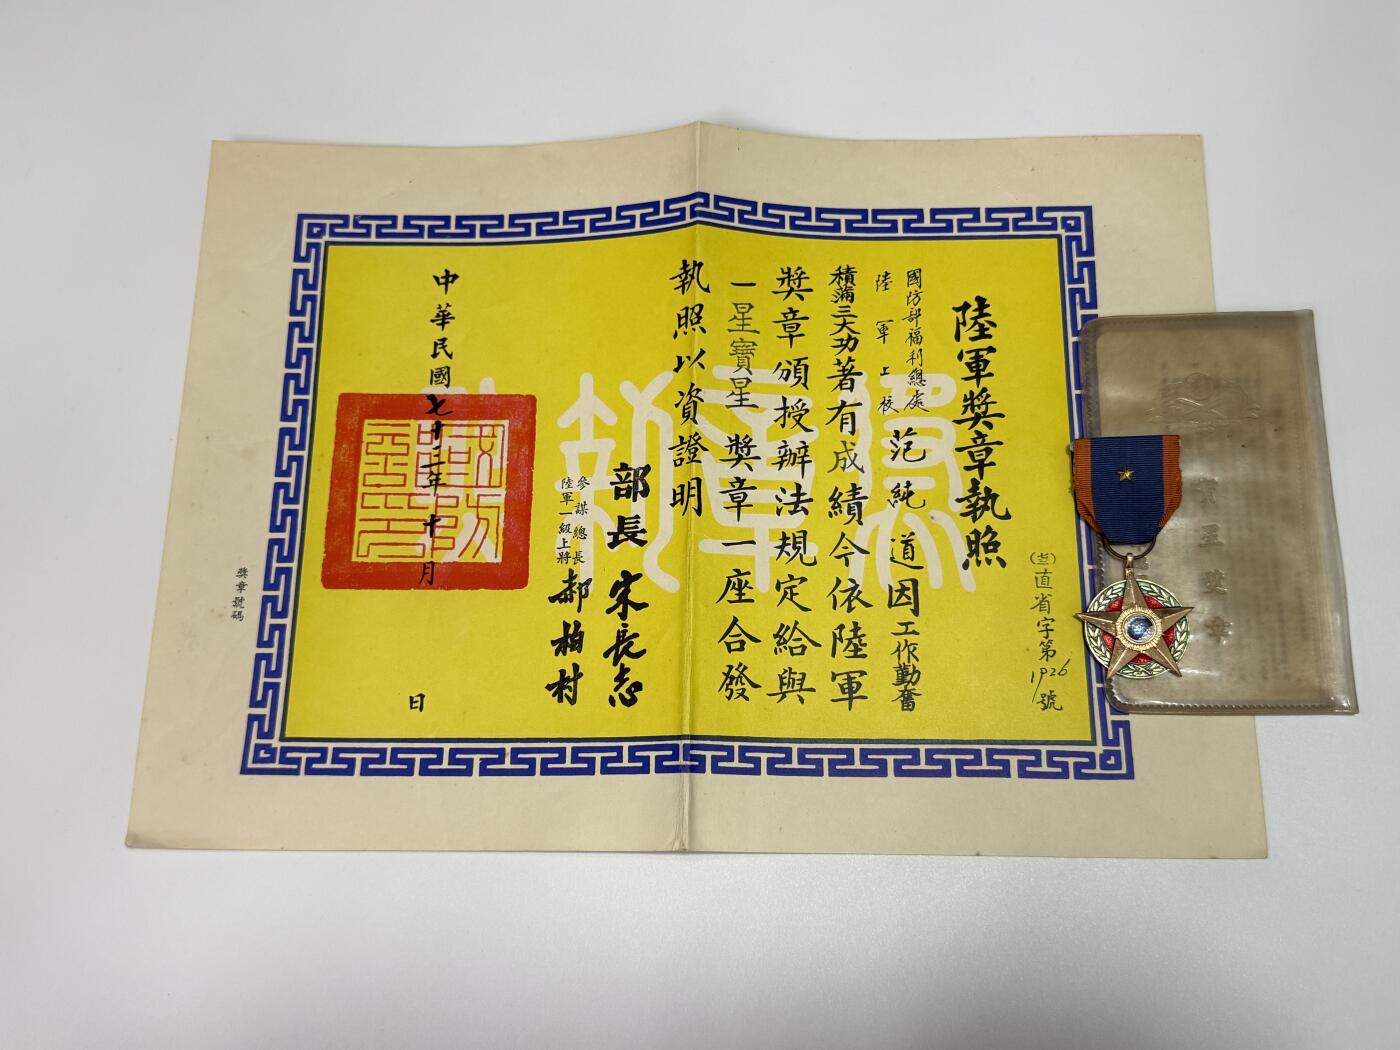 陸軍獎章執照
(圭)直省字第1926號
國防部福利總處
陸軍上校
范純道因工作勤奮
積滿三大功著有成績今依陸軍
獎章頒授辦法規定給與
一星寶星獎章一座合發
執照以資證明
部長宋長志
參謀總長
陸軍一級上將
郝柏村
中華民國七十三年十月 日
獎章號碼
寶星獎章